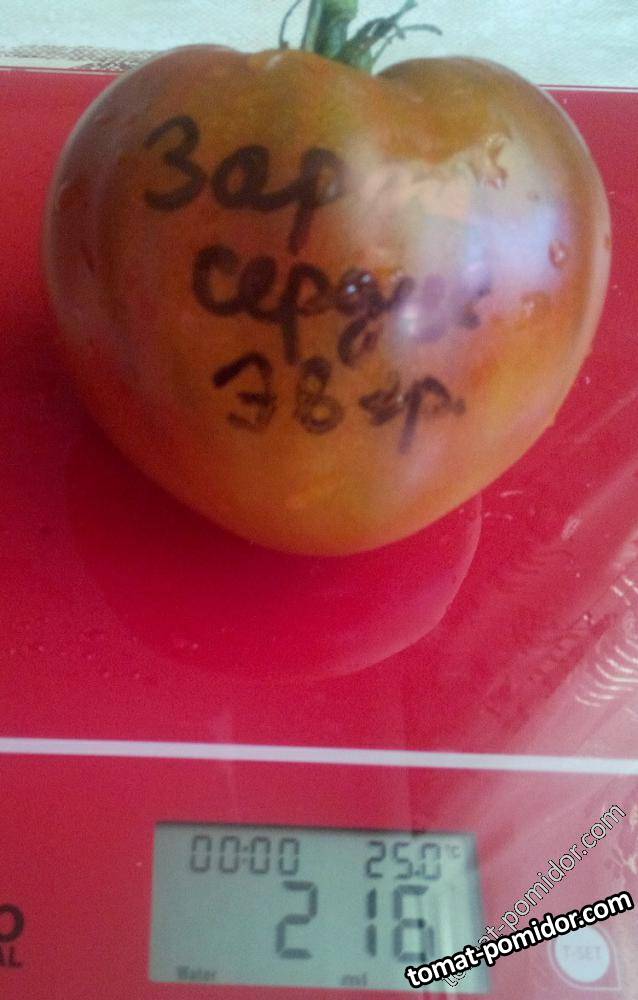 сердце
78 гр.
00:00 25.0 °C
216
Water ml
T-SET
tomat-pomidor.com
tomat-pomidor.com